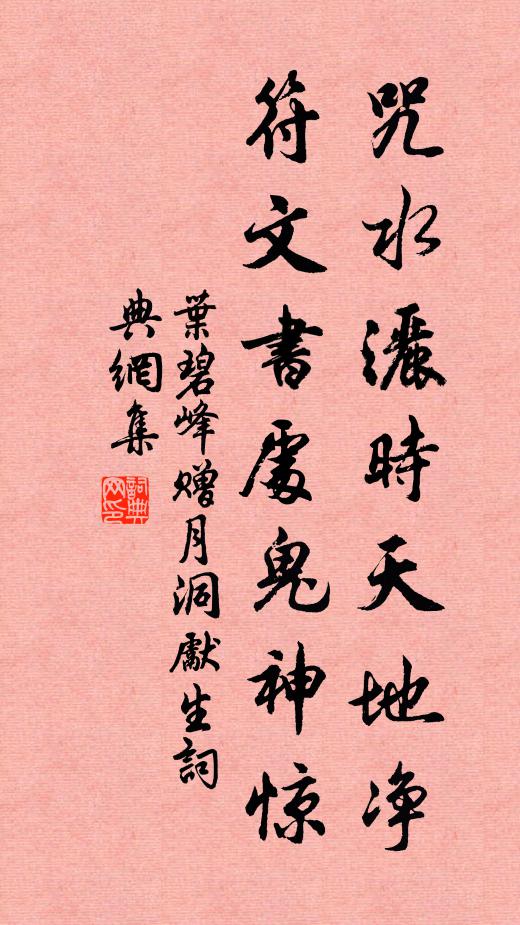 咒水灑時天地净
符文書處鬼神惊
葉碧峰赠月洞獻生詞
典網集
詞典網印